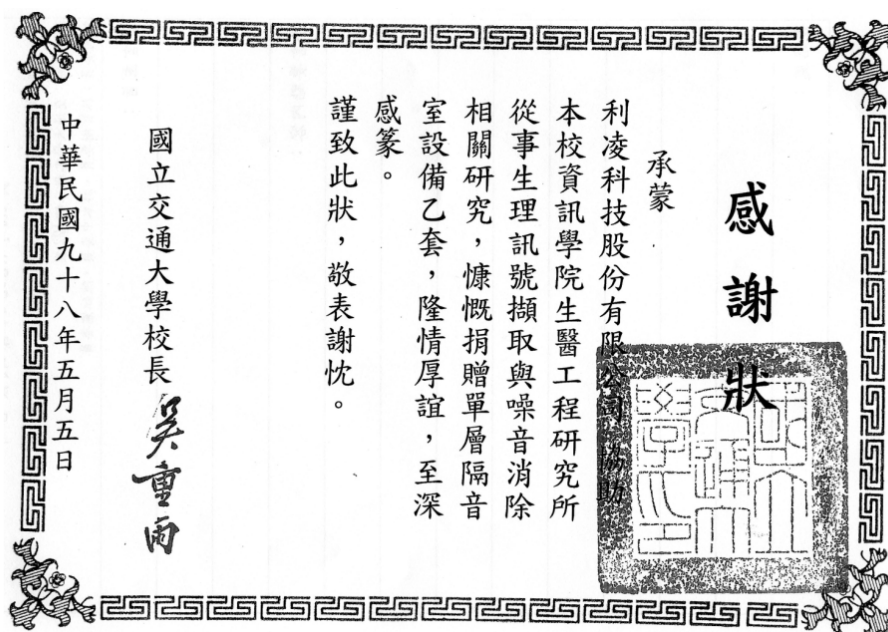 感謝狀
承蒙
利凌科技股份有限公司 協助
本校資訊學院生醫工程研究所
從事生理訊號擷取與噪音消除
相關研究，慷慨捐贈單層隔音
室設備乙套，隆情厚誼，至深
感篆。
謹致此狀，敬表謝忱。
國立交通大學校長 吳重雨
中華民國九十八年五月五日